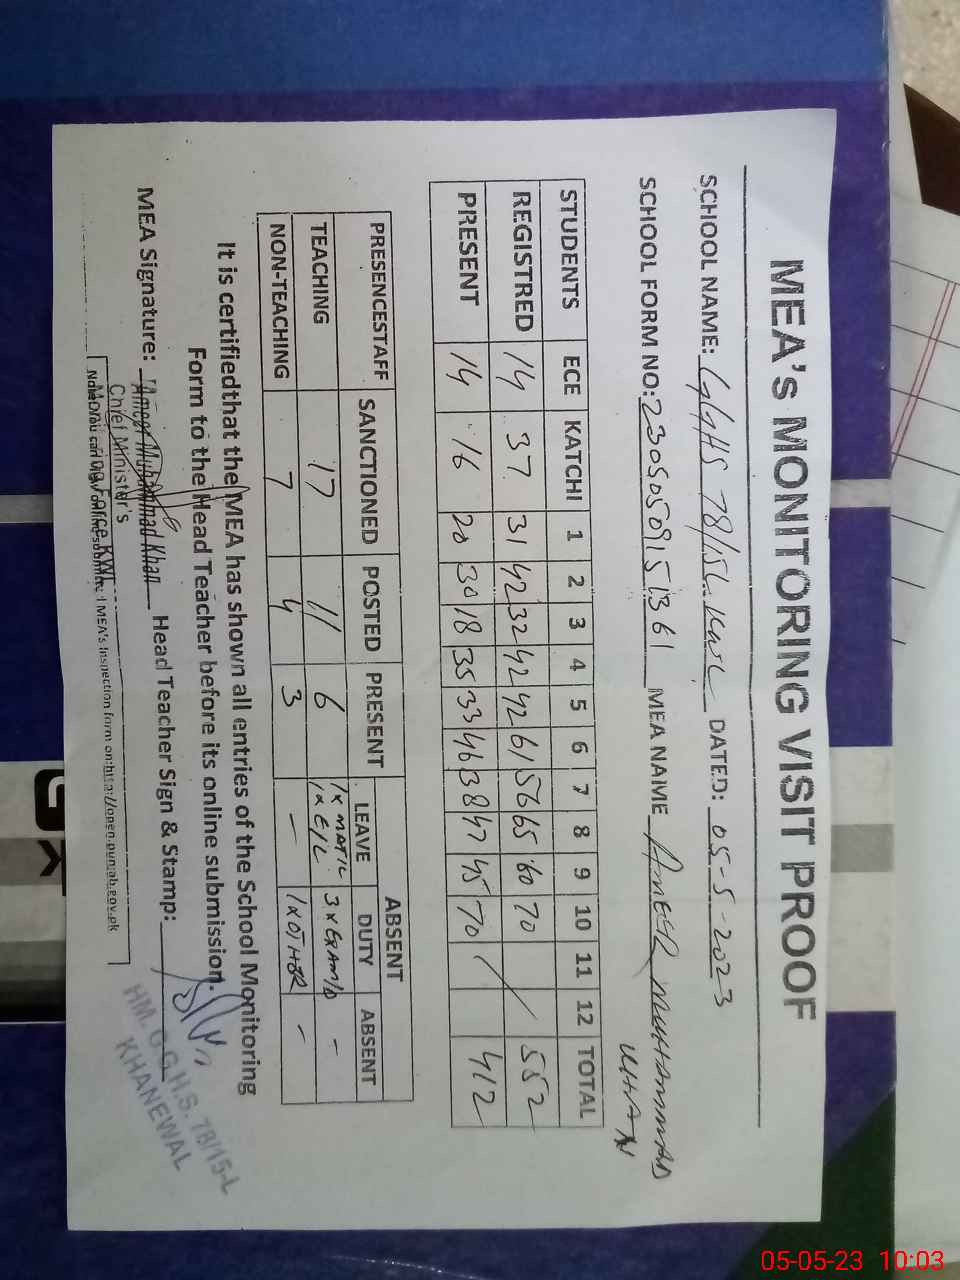 MEA's MONITORING VISIT PROOF
SCHOOL NAME: GGHS 78/15L KWL DATED: 05-5-2023
SCHOOL FORM NO: 23050509151361 MEA NAME AMEER MUHAMMAD KHAN
STUDENTS ECE KATCHI 1 2 3 4 5 6 7 8 9 10 11 12 TOTAL
REGISTRED 14 37 31 42 32 42 42 61 56 65 60 70 552
PRESENT 14 16 20 30 18 35 33 46 38 47 45 70 412
ABSENT
PRESENCESTAFF SANCTIONED POSTED PRESENT LEAVE DUTY ABSENT
TEACHING 17 11 6 1x MAT/L 1x E/L 3 x EXAM/D -
NON-TEACHING 7 4 3 - 1x OTHER -
It is certifiedthat the MEA has shown all entries of the School Monitoring
Form to the Head Teacher before its online submission.
MEA Signature: Ameer Muhammad Khan Head Teacher Sign & Stamp:
Chief Minister's
MEA's Inspection form on: http://open.punjab.gov.pk
HM. G.G.H.S. 78/15-L
KHANEWAL
05-05-23 10:03